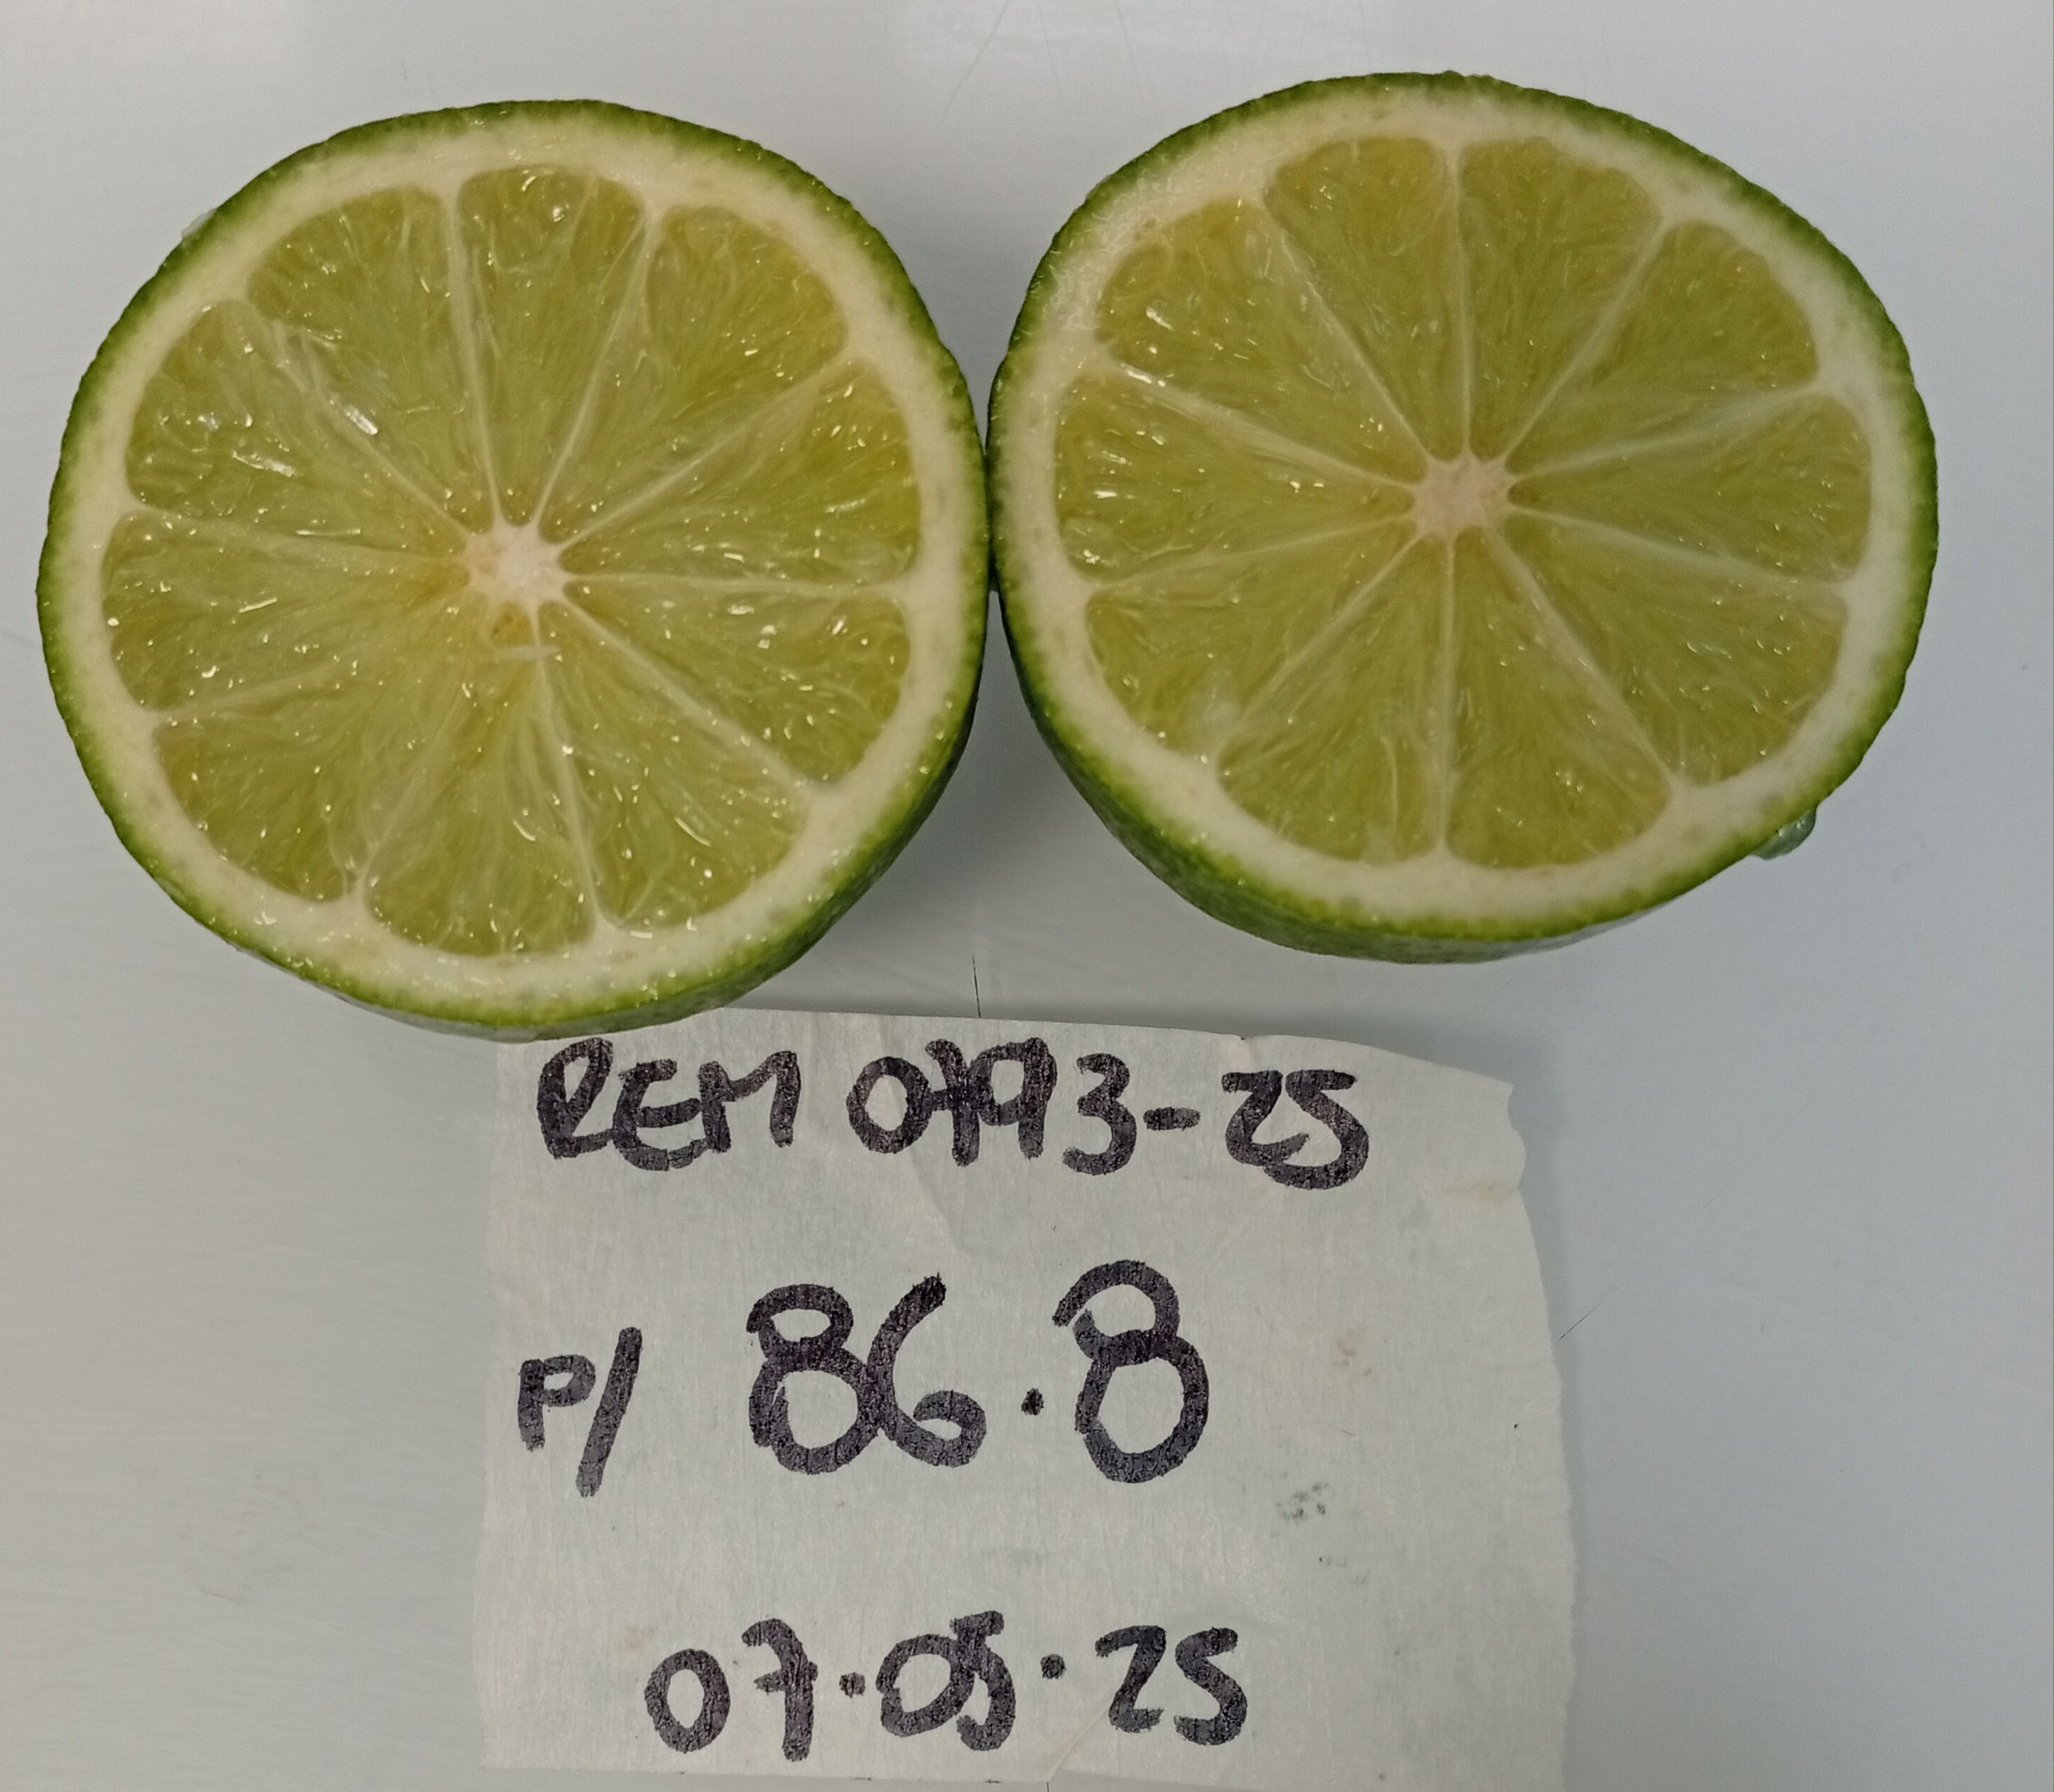 REM 0793-25
P/ 86.8
07.05.25